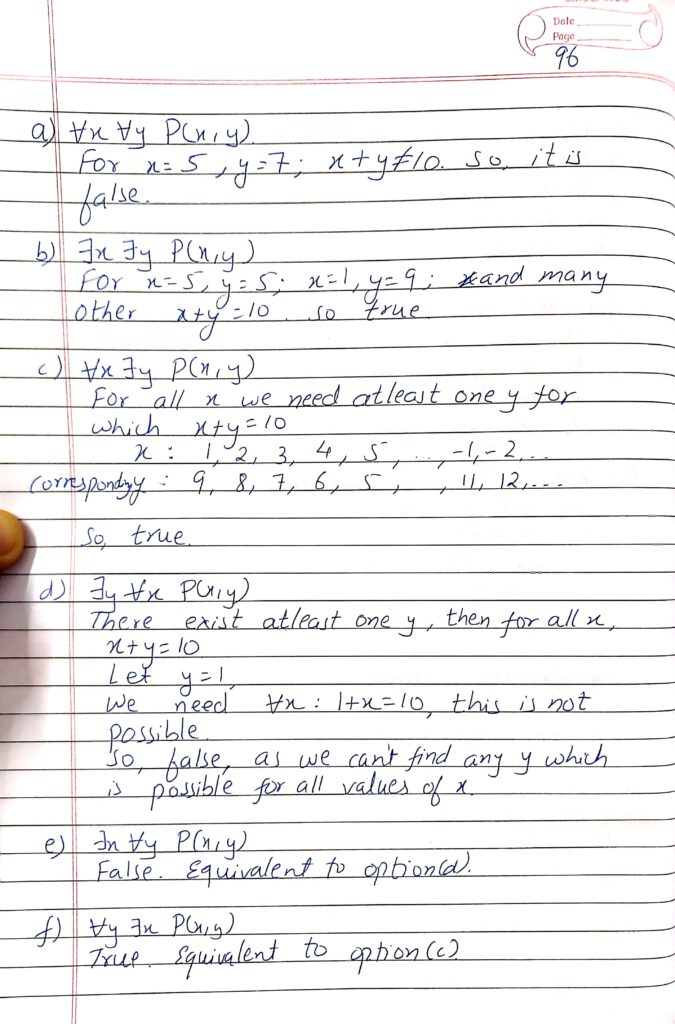 Date
Page
96
a) ∀x ∀y P(x,y)
For x=5, y=7; x+y≠10. so, it is
false.
b) ∃x ∃y P(x,y)
For x=5, y=5; x=1, y=9; and many
other x+y=10. so true
c) ∀x ∃y P(x,y)
For all x we need atleast one y for
which x+y=10
x : 1, 2, 3, 4, 5, ..., -1, -2, ...
y : 9, 8, 7, 6, 5, , 11, 12, ---
So, true.
d) ∃y ∀x P(x,y)
There exist atleast one y, then for all x,
x+y=10
Let y=1,
We need ∀x : 1+x=10, this is not
possible.
So, false, as we can't find any y which
is possible for all values of x.
e) ∃x ∀y P(x,y)
False. Equivalent to option(d).
f) ∀y ∃x P(x,y)
True. Equivalent to option(c)